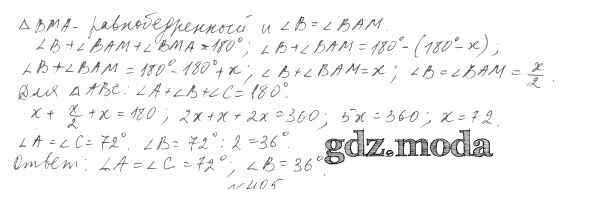 △BMA - равнобедренный и ∠B = ∠BAM.
∠B + ∠BAM + ∠BMA = 180°; ∠B + ∠BAM = 180° - (180° - x);
∠B + ∠BAM = 180° - 180° + x; ∠B + ∠BAM = x; ∠B = ∠BAM = x/2.
Для △ABC: ∠A + ∠B + ∠C = 180°.
x + x/2 + x = 180; 2x + x + 2x = 360; 5x = 360; x = 72.
∠A = ∠C = 72°. ∠B = 72° : 2 = 36°.
gdz.moda
Ответ: ∠A = ∠C = 72°, ∠B = 36°.
№405